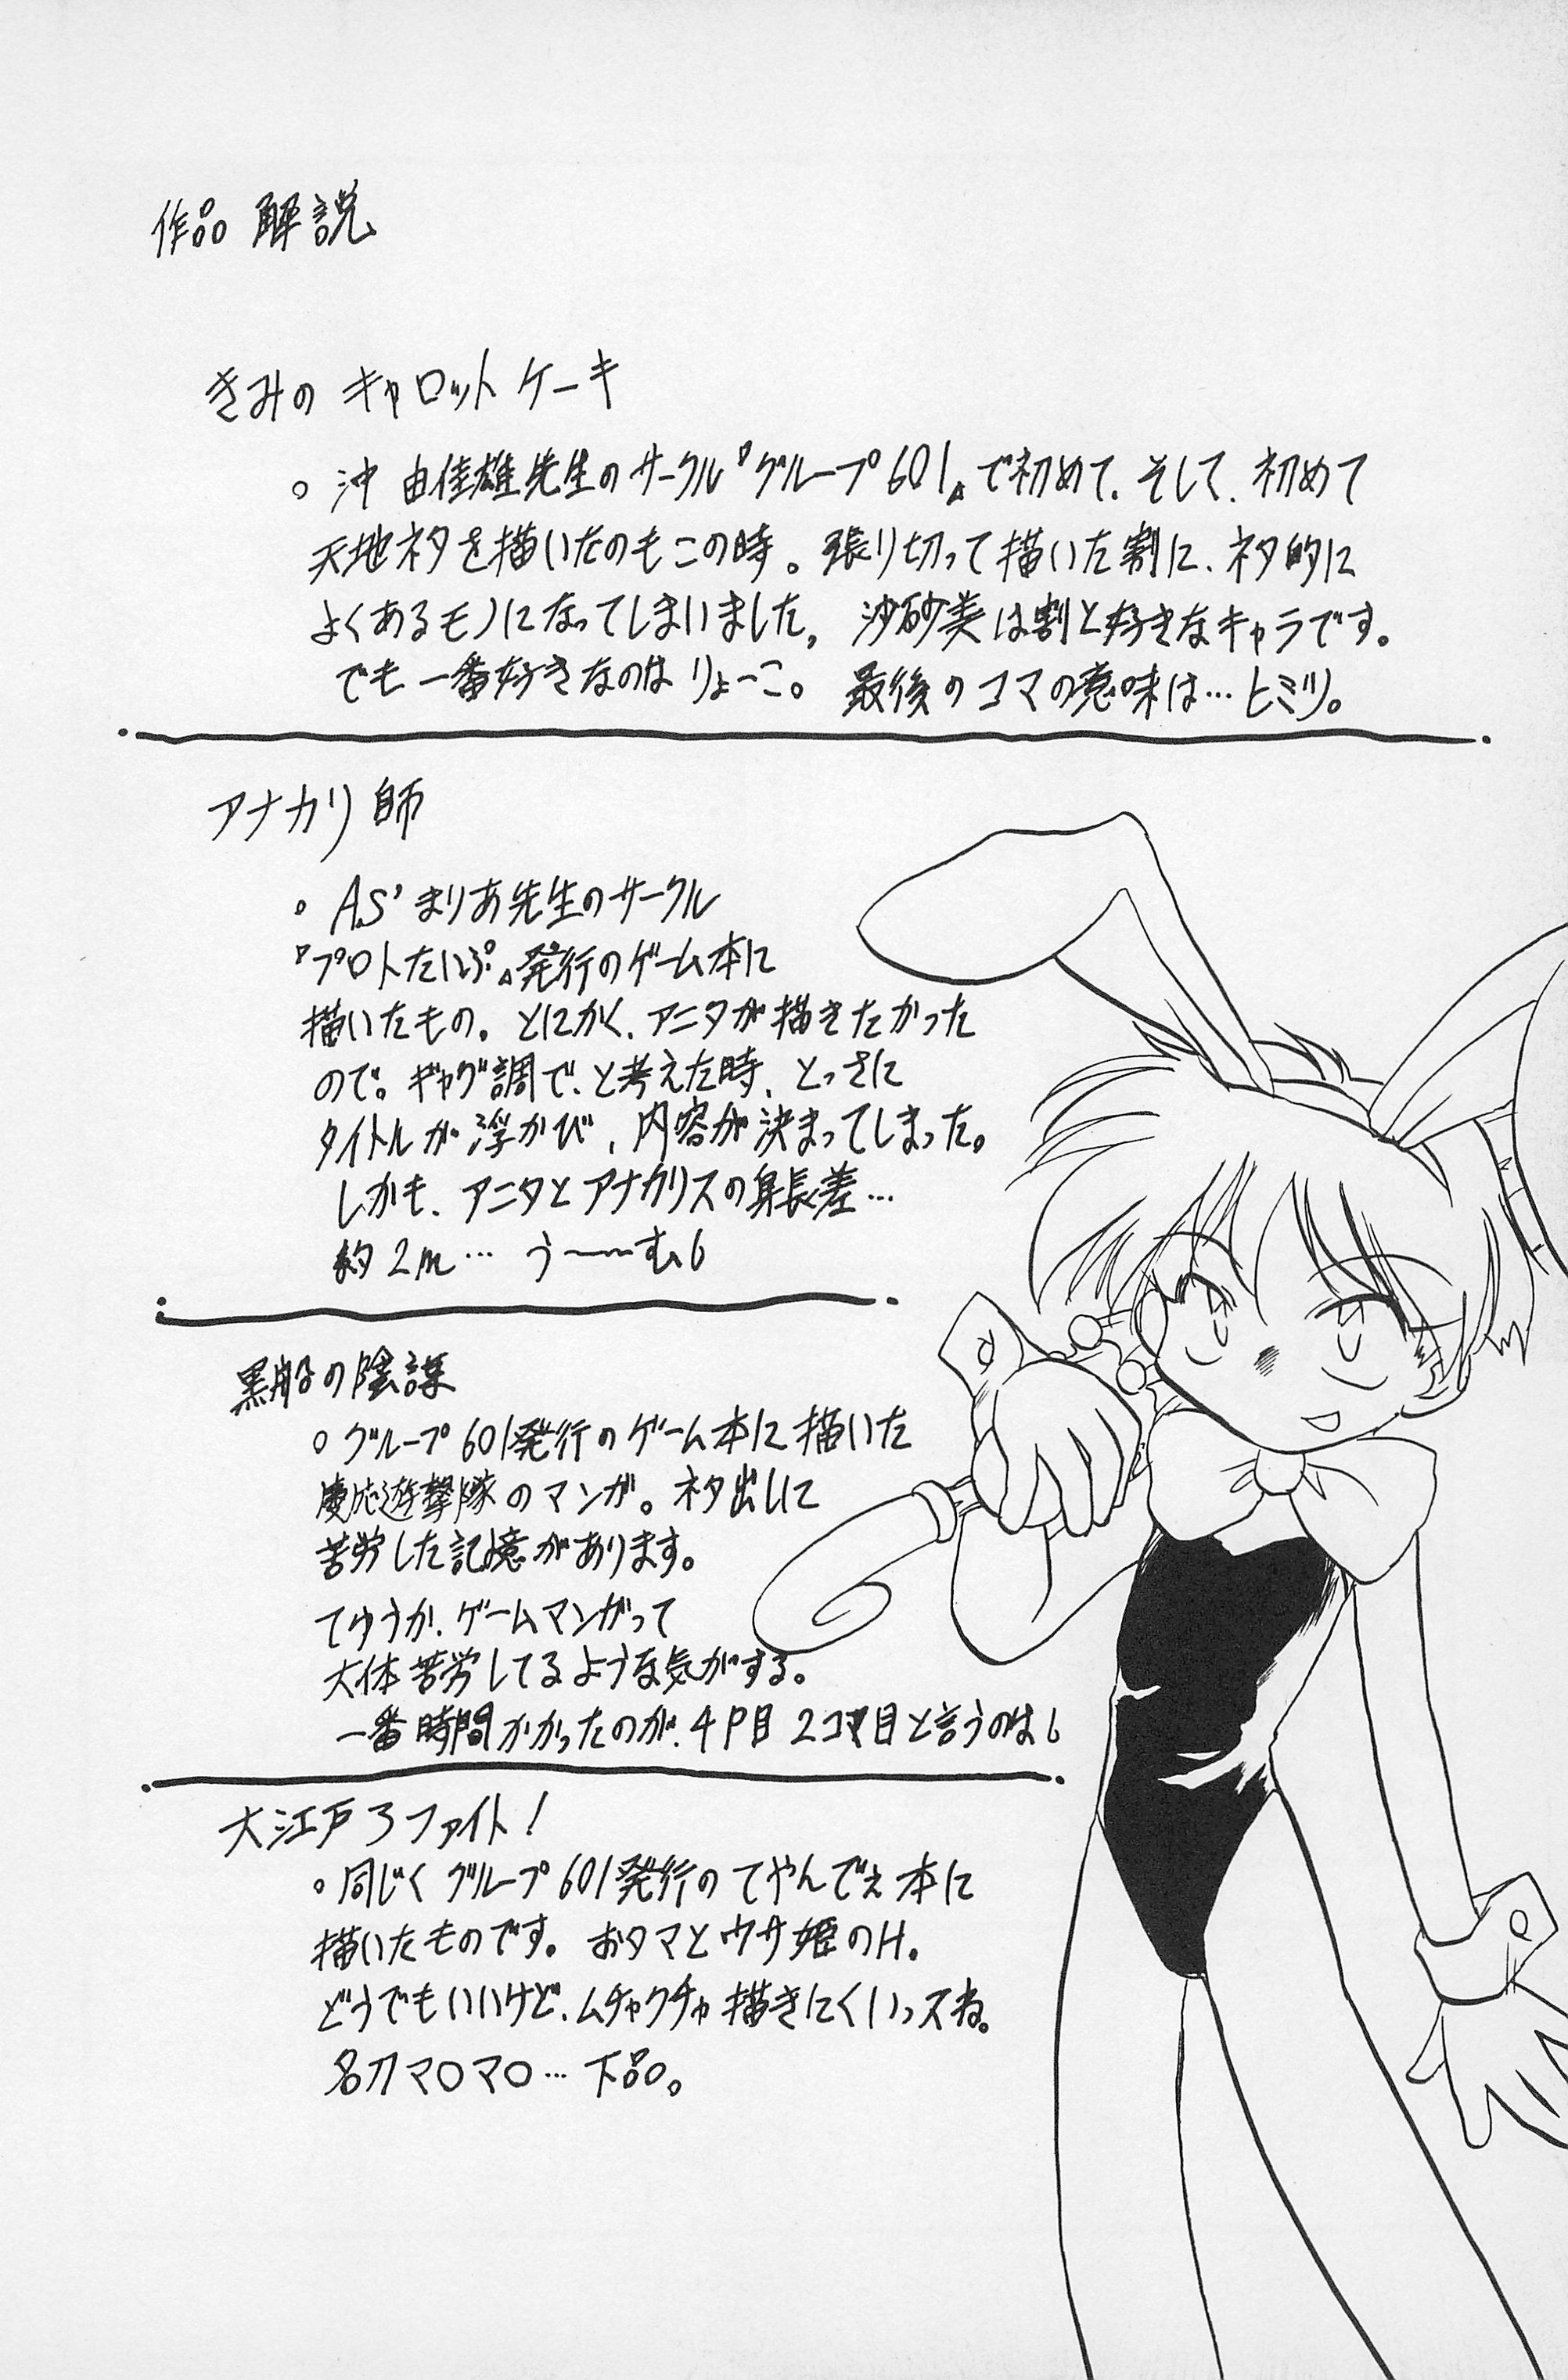 作品解説
きみのキャロットケーキ
○沖由佳雄先生のサークル『グループ601』で初めて、そして、初めて
天地ネタを描いたのもこの時。張り切って描いた割に、ネタ的に
よくあるモノになってしまいました。沙砂美は割と好きなキャラです。
でも一番好きなのはりょーこ。最後のコマの意味は…ヒミツ。
アナカリ師
○AS'まりあ先生のサークル
『プロトたいぷ』発行のゲーム本に
描いたもの。とにかく、アニタが描きたかった
ので。ギャグ調で、と考えた時、とっさに
タイトルが浮かび、内容が決まってしまった。
しかも、アニタとアナカリスの身長差…
約2m… う〜〜む
黒船の陰謀
○グループ601発行のゲーム本に描いた
慶応遊撃隊のマンガ。ネタ出しに
苦労した記憶があります。
てゆうか、ゲームマンガって
大体苦労してるような気がする。
一番時間かかったのが、4P目2コマ目と言うのは
大江戸ろファイト!
○同じくグループ601発行のてやんでえ本に
描いたものです。おタマとウサ姫のH。
どうでもいいけど、ムチャクチャ描きにくいっスね。
名刀マ○マ○…下品。